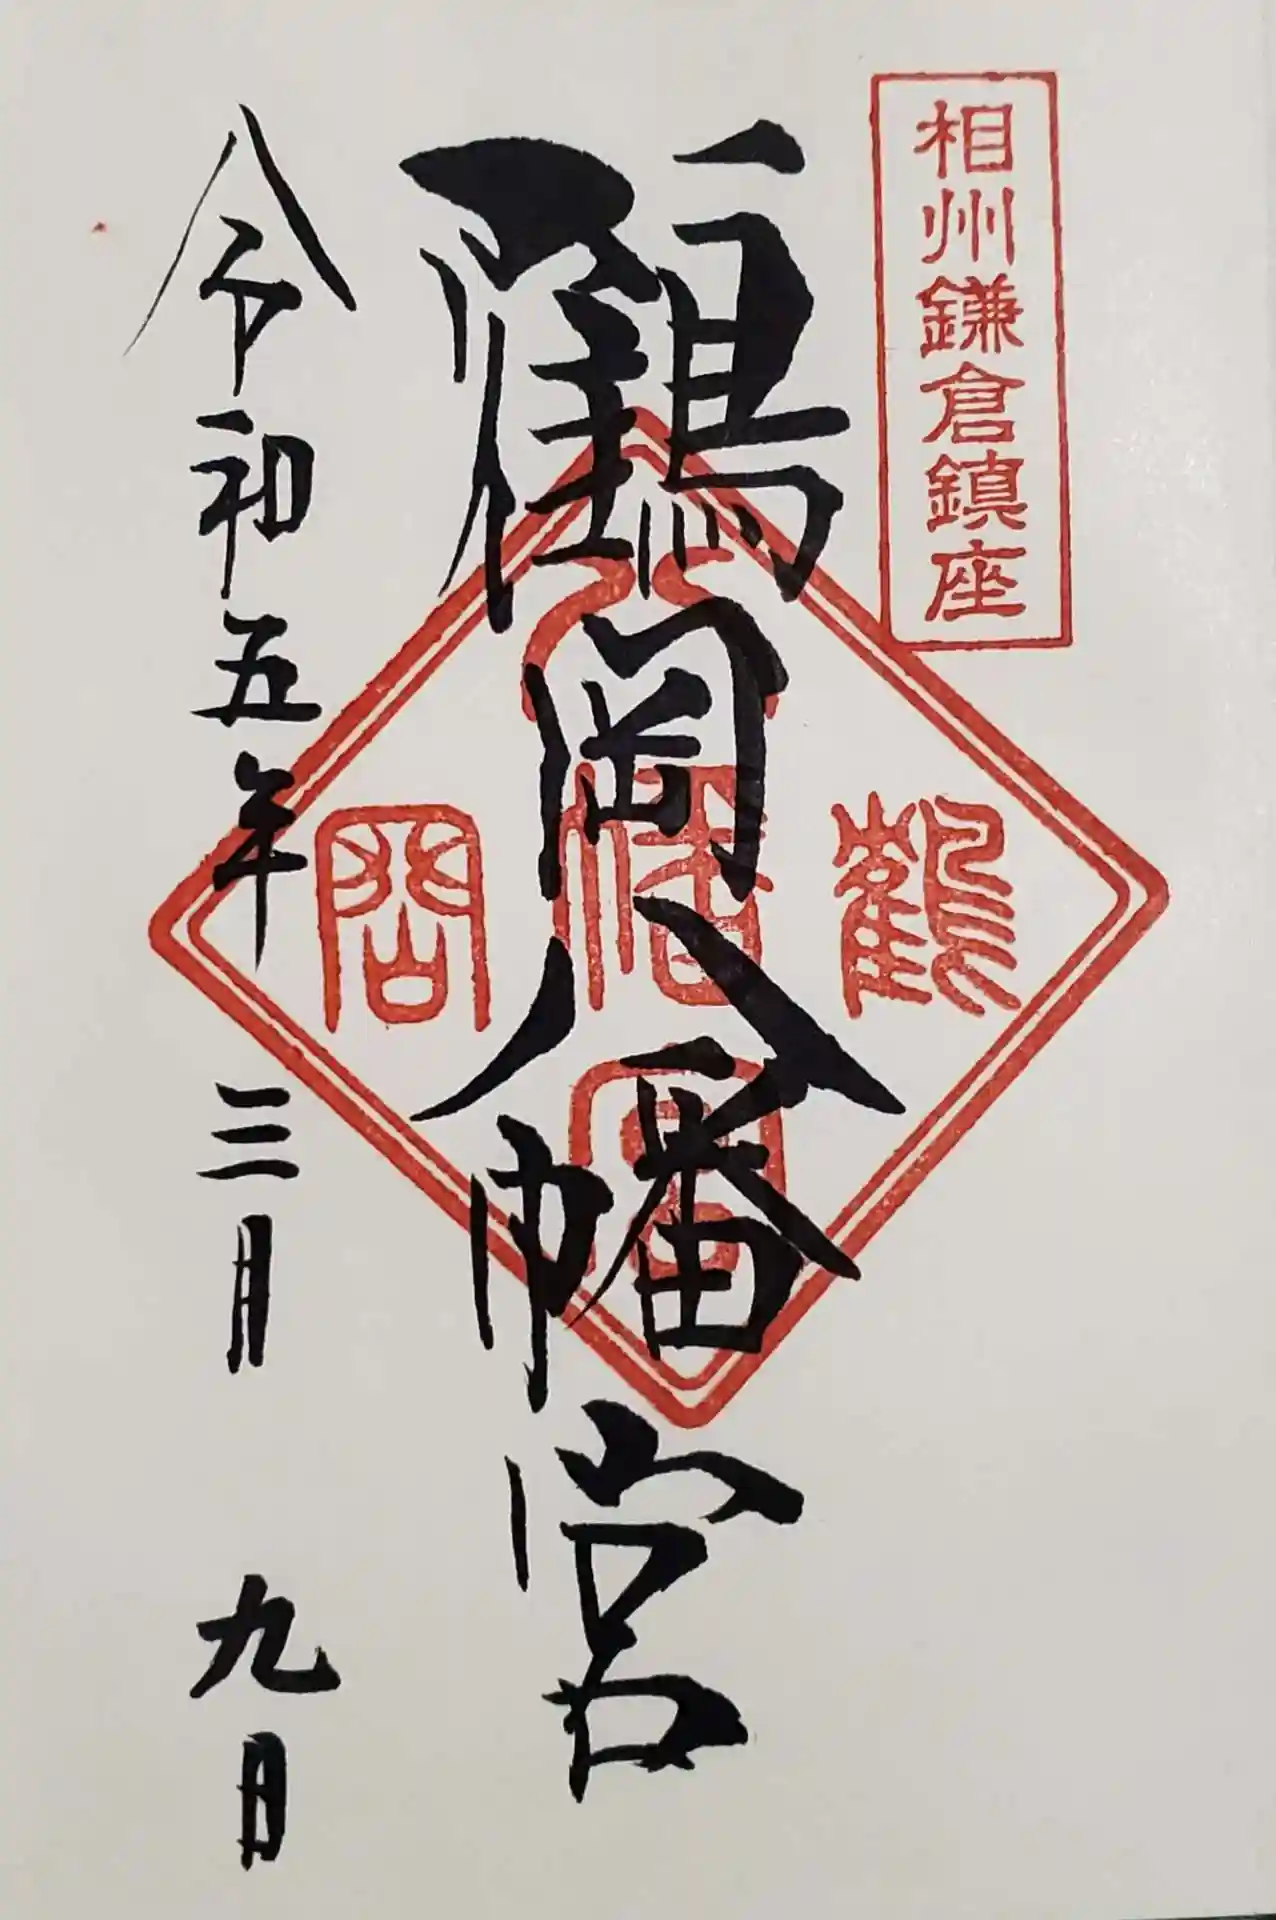 相州鎌倉鎮座
鶴岡八幡宮
鶴
八幡宮
岡
令和五年三月九日